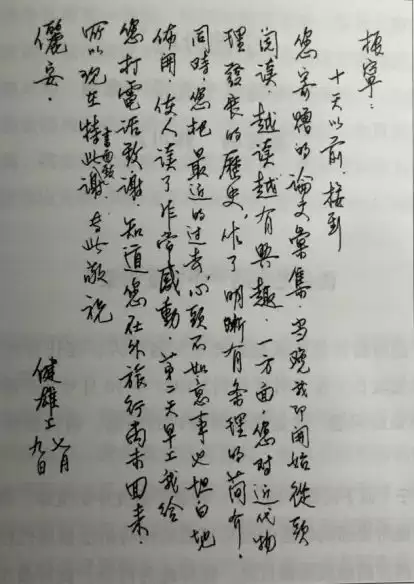 振寧：
十天以前，接到
您寄贈的論文彙集，当晚我即開始從頭
阅读，越读越有興趣．一方面，您对近代物
理發展的歷史，作了明晰有条理的简介，
同時，您把最近的过去，心頭不如意事也坦白地
佈開，使人读了非常感動．第二天早上我给
您打電话致謝，知道您在外旅行尚未回来．
所以現在特此書面致謝．专此敬祝
儷安．
健雄上 七月
九日